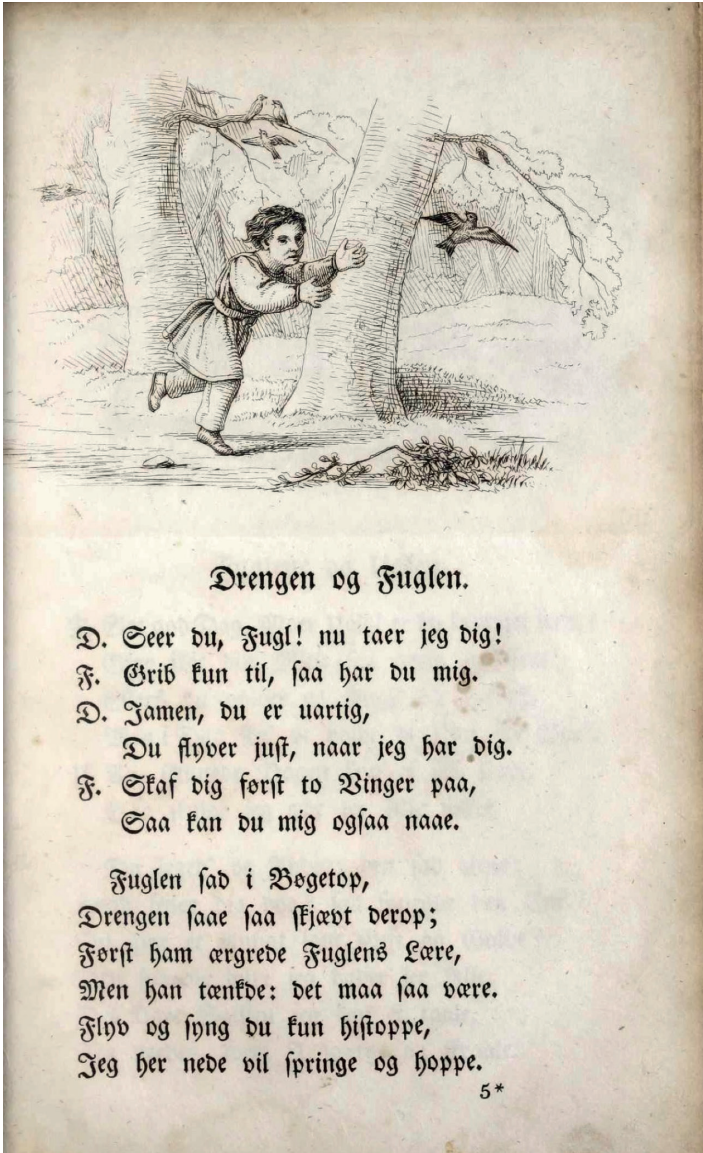 Drengen og Fuglen.
D. Seer du, Fugl! nu taer jeg dig!
F. Grib kun til, saa har du mig.
D. Jamen, du er uartig,
Du flyver just, naar jeg har dig.
F. Skaf dig først to Vinger paa,
Saa kan du mig ogsaa naae.
Fuglen sad i Bøgetop,
Drengen saae saa skjævt derop;
Først ham ærgrede Fuglens Lære,
Men han tænkde: det maa saa være.
Flyv og syng du kun histoppe,
Jeg her nede vil springe og hoppe.
5*